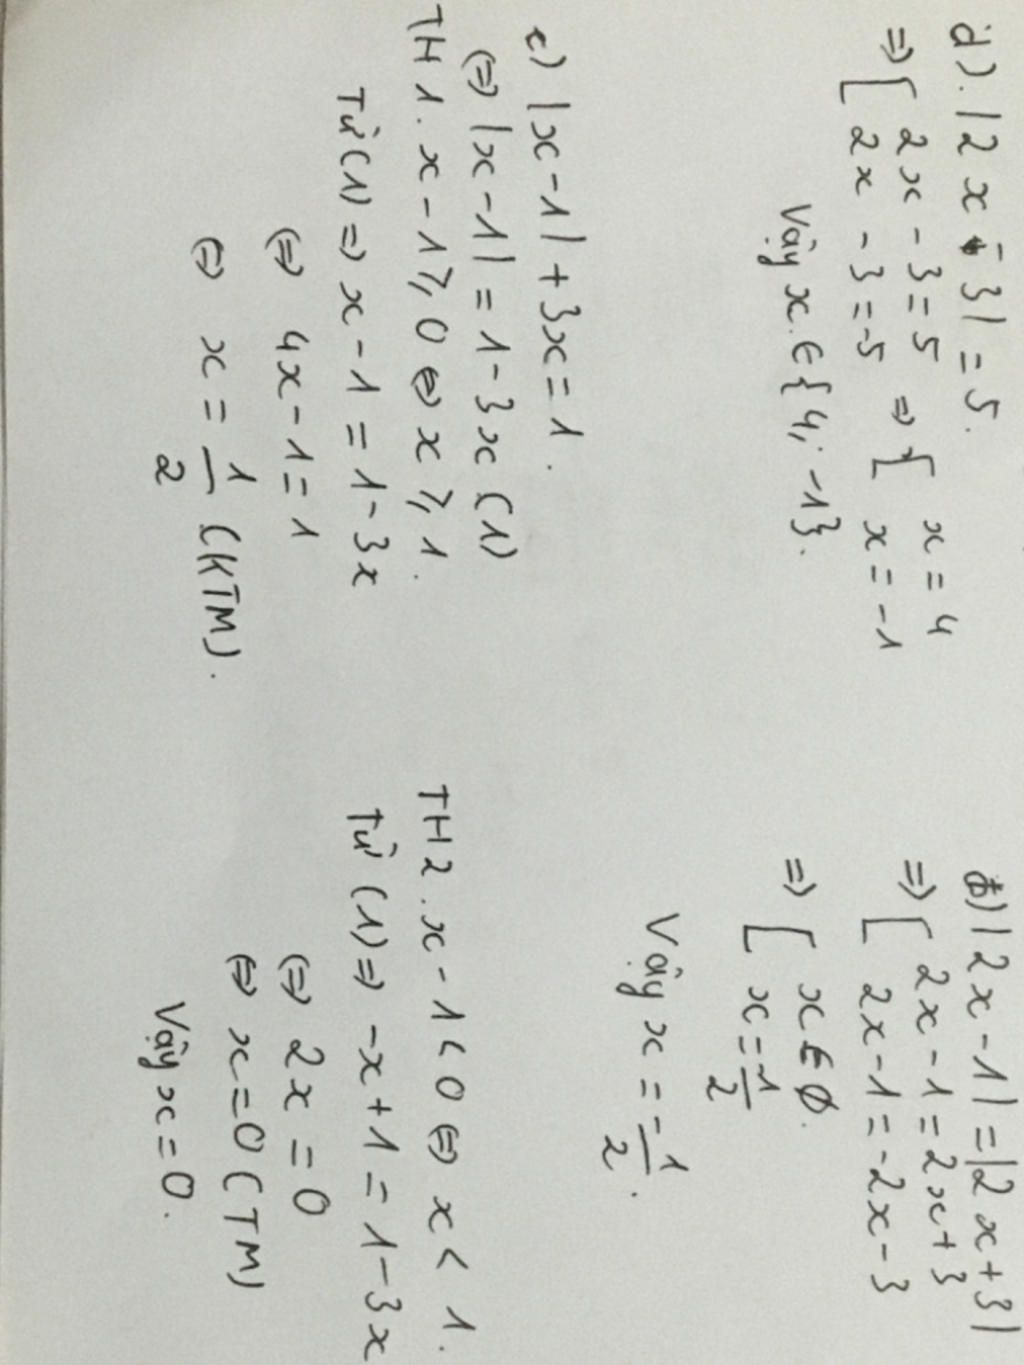 d). |2x - 3| = 5.
=> [ 2x - 3 = 5 => [ x = 4
2x - 3 = -5 x = -1
Vậy x ∈ {4; -1}.
b) |2x - 1| = |2x + 3|
=> [ 2x - 1 = 2x + 3
2x - 1 = -2x - 3
=> [ x ∈ ∅.
x = -1/2
Vậy x = -1/2.
c) |x - 1| + 3x = 1.
(=) |x - 1| = 1 - 3x (1)
TH1. x - 1 ⩾ 0 ⇔ x ⩾ 1.
Từ (1) => x - 1 = 1 - 3x
(=) 4x - 1 = 1
⇔ x = 1/2 (KTM).
TH2. x - 1 < 0 ⇔ x < 1.
Từ (1) => -x + 1 = 1 - 3x
(=) 2x = 0
⇔ x = 0 (TM)
Vậy x = 0.